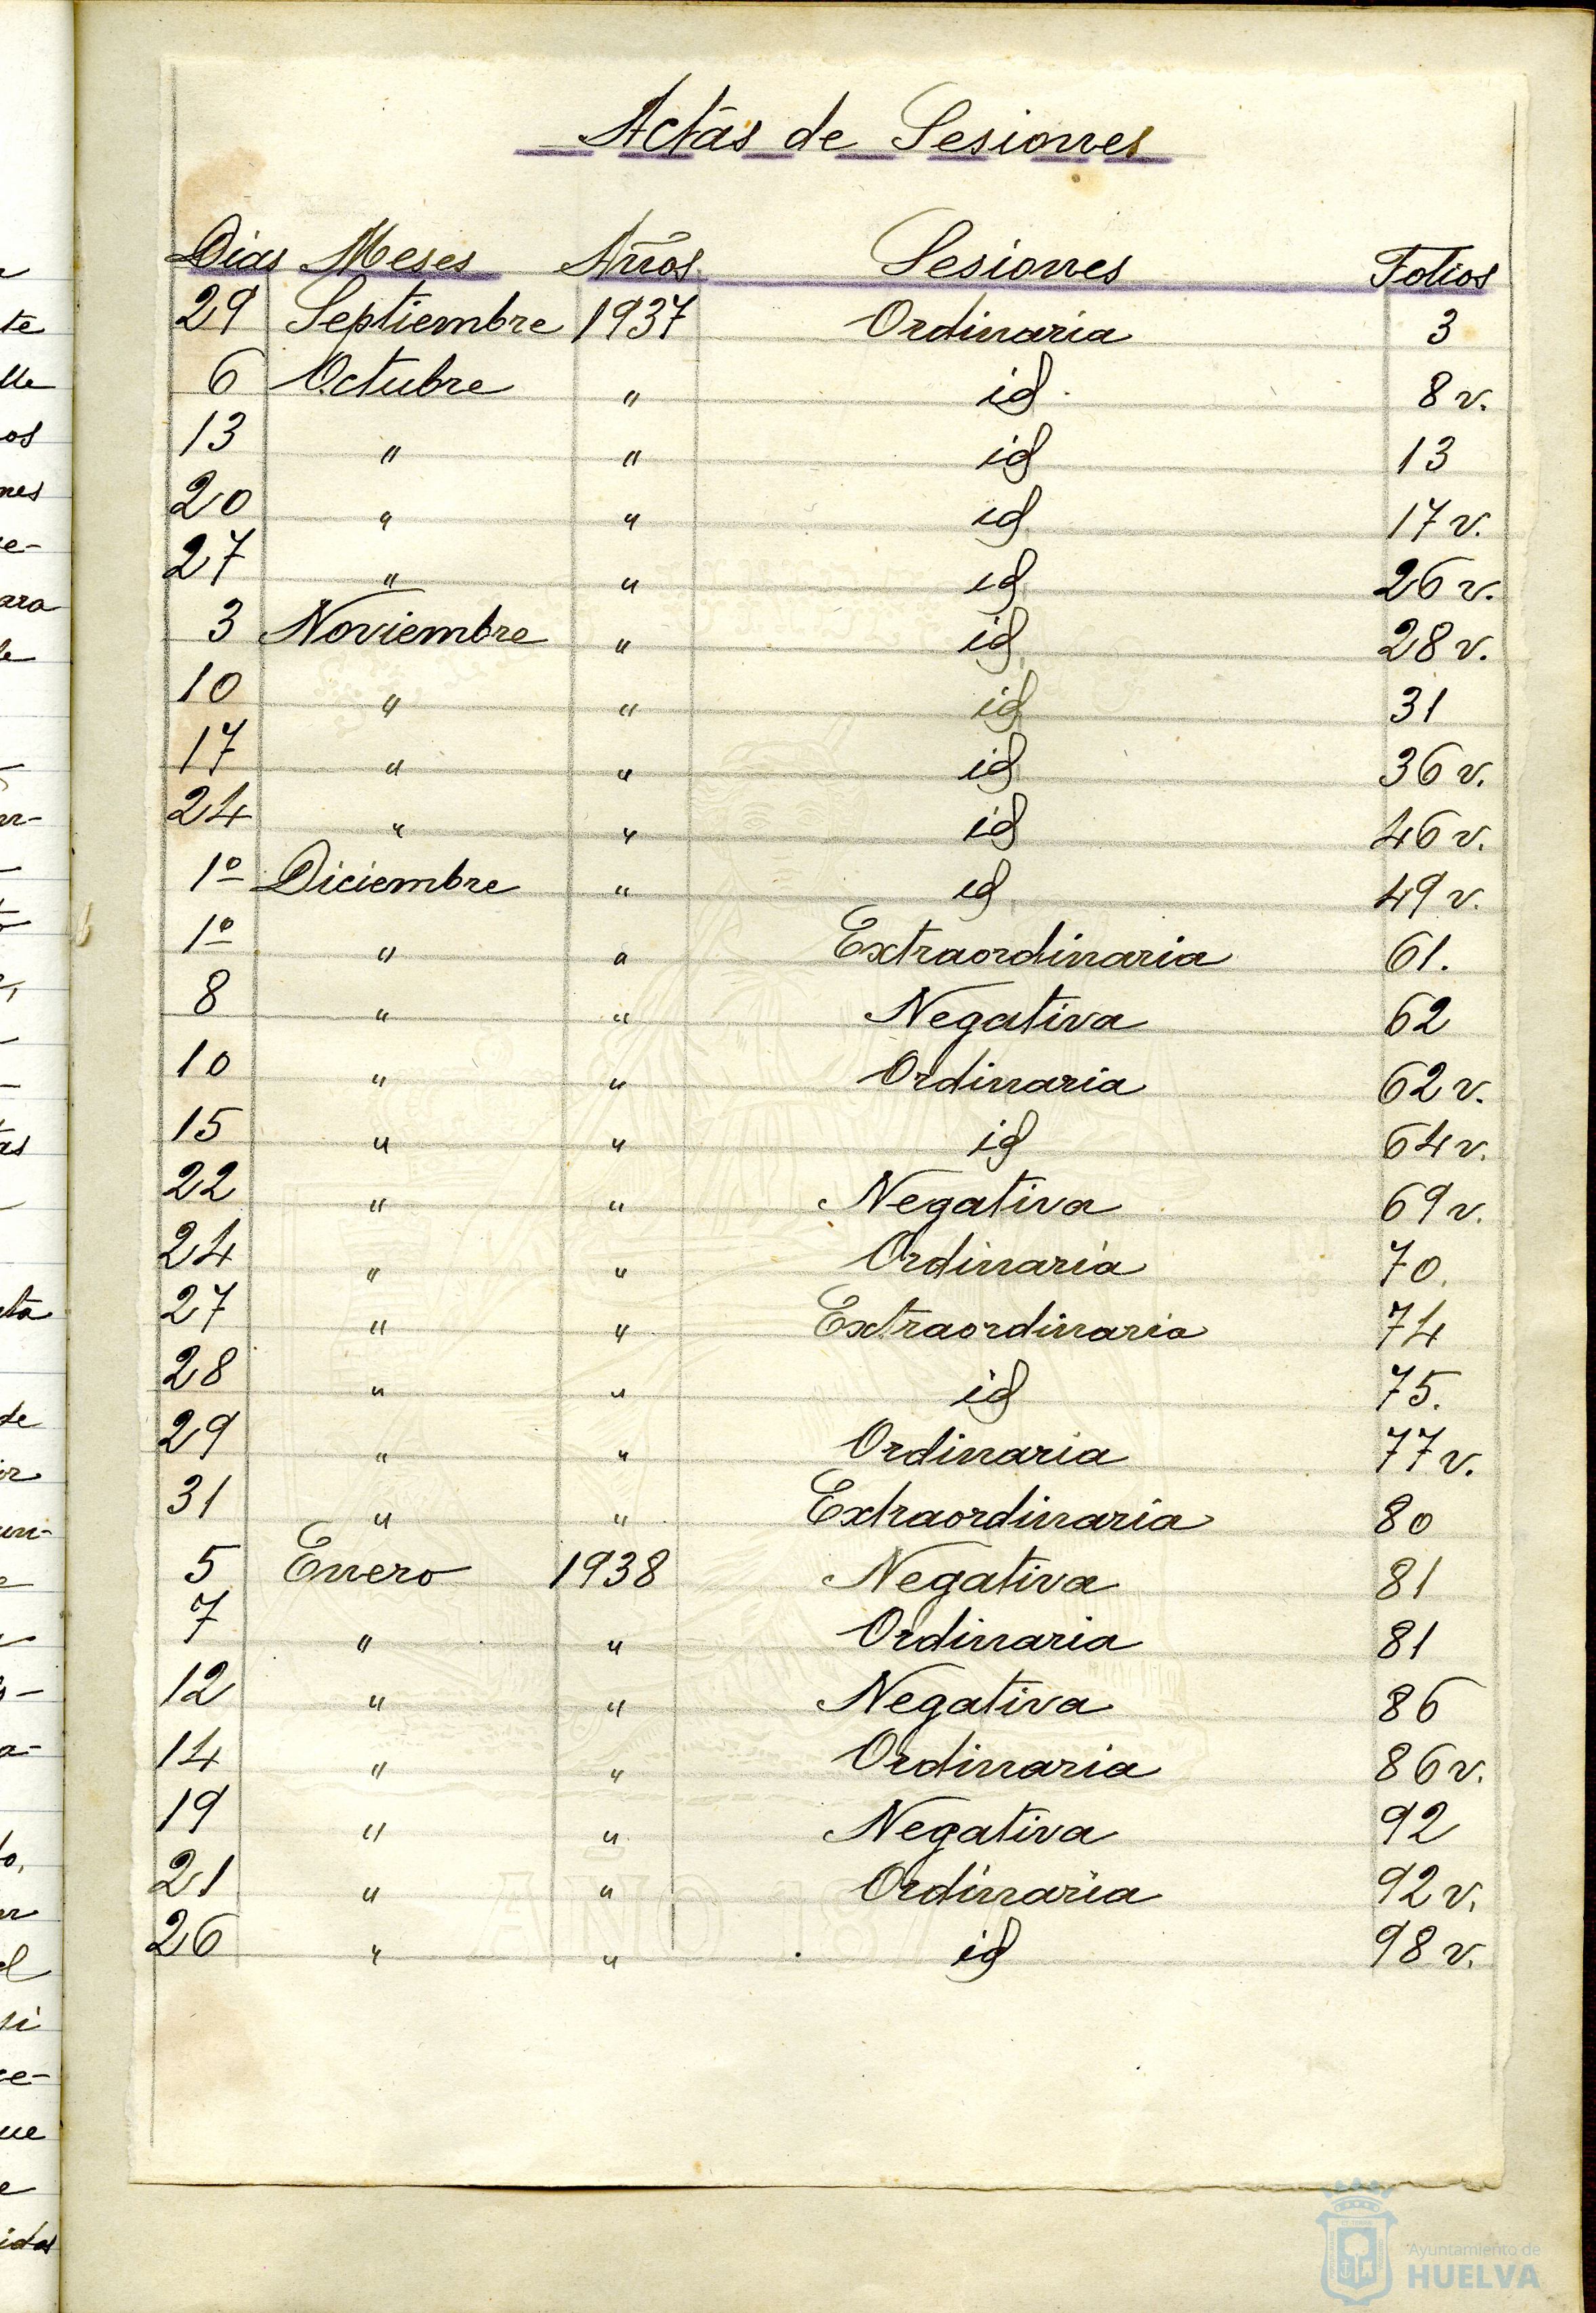 Actas de Sesiones
Dias Meses Años Sesiones Folios
29 Septiembre 1937 Ordinaria 3
6 Octubre " id. 8 v.
13 " " id 13
20 " " id. 17 v.
27 " " id. 26 v.
3 Noviembre " id. 28 v.
10 " " id 31
17 " " id. 36 v.
24 " " id 46 v.
1º Diciembre " id. 49 v.
1º " " Extraordinaria 61.
8 " " Negativa 62
10 " " Ordinaria 62 v.
15 " " id 64 v.
22 " " Negativa 69 v.
24 " " Ordinaria 70.
27 " " Extraordinaria 74
28 " " id 75.
29 " " Ordinaria 77 v.
31 " " Extraordinaria 80
5 Enero 1938 Negativa 81
7 " " Ordinaria 81
12 " " Negativa 86
14 " " Ordinaria 86 v.
19 " " Negativa 92
21 " " Ordinaria 92 v.
26 " " id 98 v.
Ayuntamiento de
HUELVA